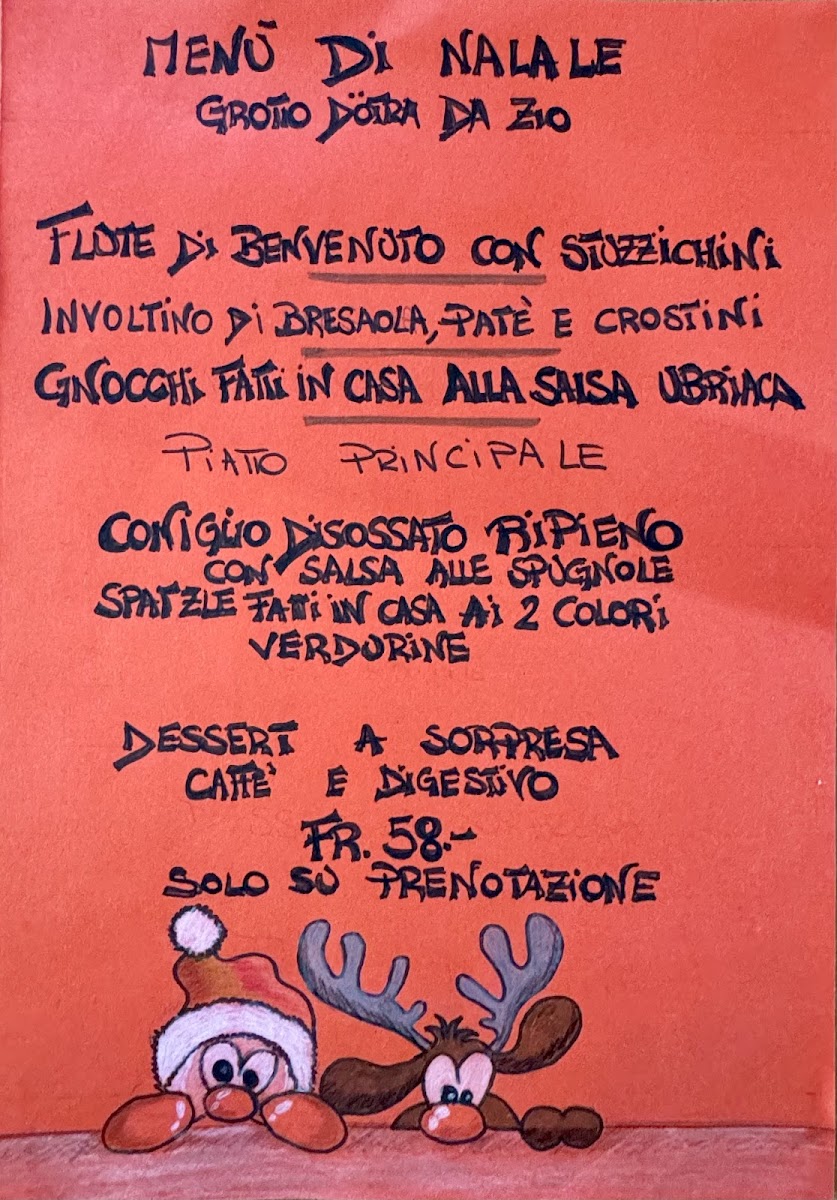 MENÙ Di NATALE
GROTTO DÖTRA DA ZIO
FLUTE Di BENVENUTO CON STUZZICHINI
INVOLTINO Di BRESAOLA, PATÈ E CROSTINI
GNOCCHI FATTI IN CASA ALLA SALSA UBRIACA
PIATTO PRINCIPALE
CONIGLIO DISOSSATO RIPIENO
CON SALSA ALLE SPUGNOLE
SPATZLE FATTI IN CASA Ai 2 COLORI
VERDURINE
DESSERT A SORPRESA
CAFFÈ E DIGESTIVO
FR. 58.-
SOLO SU PRENOTAZIONE